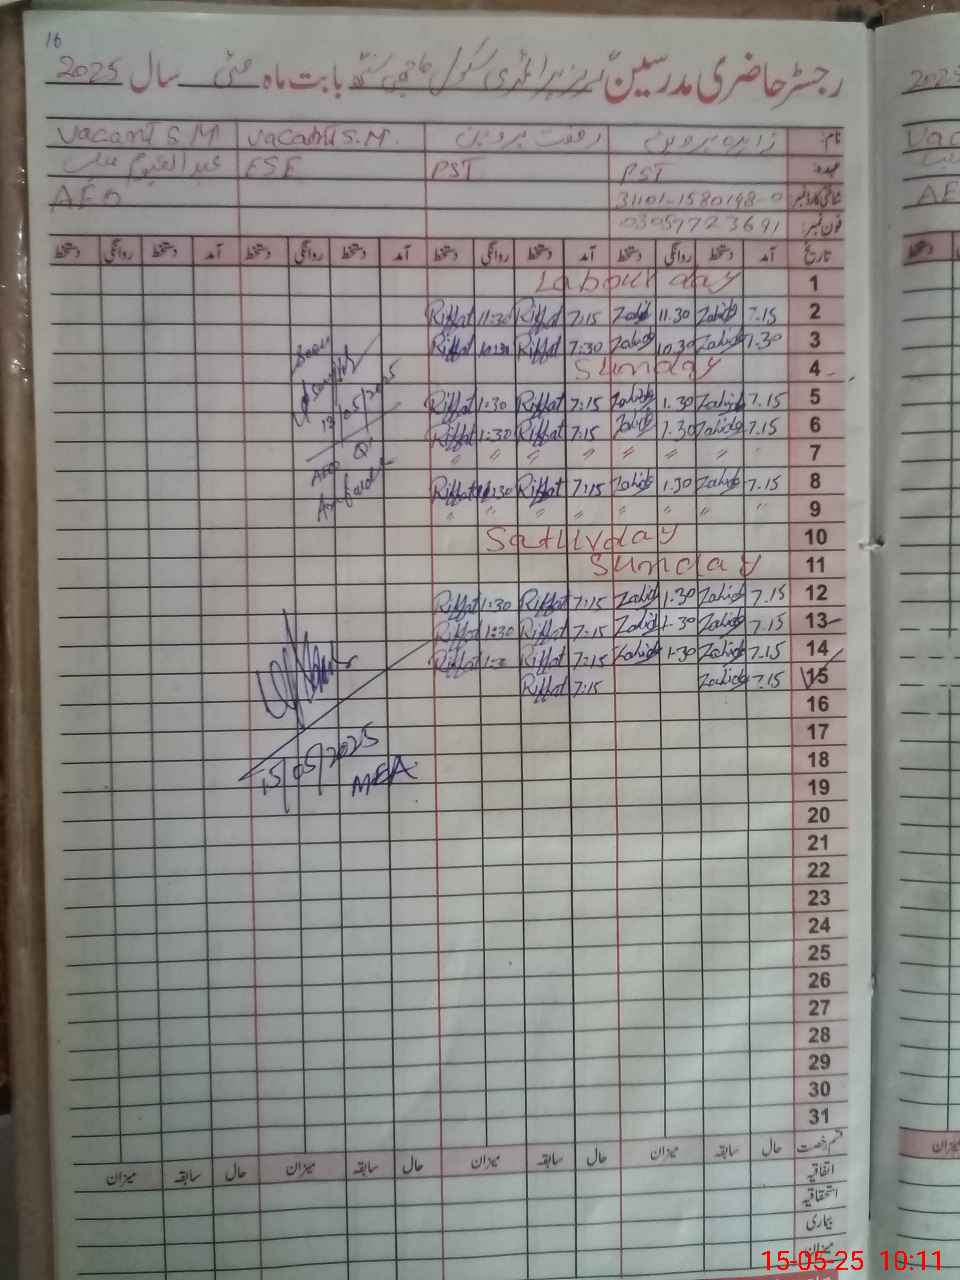 16
رجسٹر حاضری مدرسین گرلز پرائمری سکول بابت ماہ مئی سال 2025
نام: زاہدہ پروین رفعت پروین Vacant S.M. Vacant S.M
عہدہ PST PST ESE
شناختی کارڈ نمبر 31101-1580198-0 AEO
فون نمبر: 03059723691
تاریخ آمد دستخط روانگی دستخط آمد دستخط روانگی دستخط آمد دستخط روانگی دستخط آمد دستخط روانگی دستخط
1 Labour day
2 7.15 Zahida 11.30 Zahida 7:15 Riffat 11:30 Riffat
3 7.30 Zahida 10.30 Zahida 7:30 Riffat 10:30 Riffat
4 Sunday
5 7.15 Zahida 1.30 Zahida 7:15 Riffat 1:30 Riffat
6 7.15 Zahida 1.30 Zahida 7:15 Riffat 1:30 Riffat
7 " " " " " " " "
8 7.15 Zahida 1.30 Zahida 7:15 Riffat 11:30 Riffat
9 " " " " " " " "
10 Saturday
11 Sunday
12 7.15 Zahida 1.30 Zahida 7:15 Riffat 1:30 Riffat
13 7.15 Zahida 1.30 Zahida 7:15 Riffat 1:30 Riffat
14 7.15 Zahida 1.30 Zahida 7:15 Riffat 1:30 Riffat
15 7.15 Zahida 7:15 Riffat
16
17
18
19
20
21
22
23
24
25
26
27
28
29
30
31
Seen
13/05/2025
AEO
15/05/2025
MEA
قسم رخصت حال سابقہ میزان حال سابقہ میزان حال سابقہ میزان حال سابقہ میزان
اتفاقیہ
استحقاقیہ
بیماری
میزان
2025
15-05-25 10:11